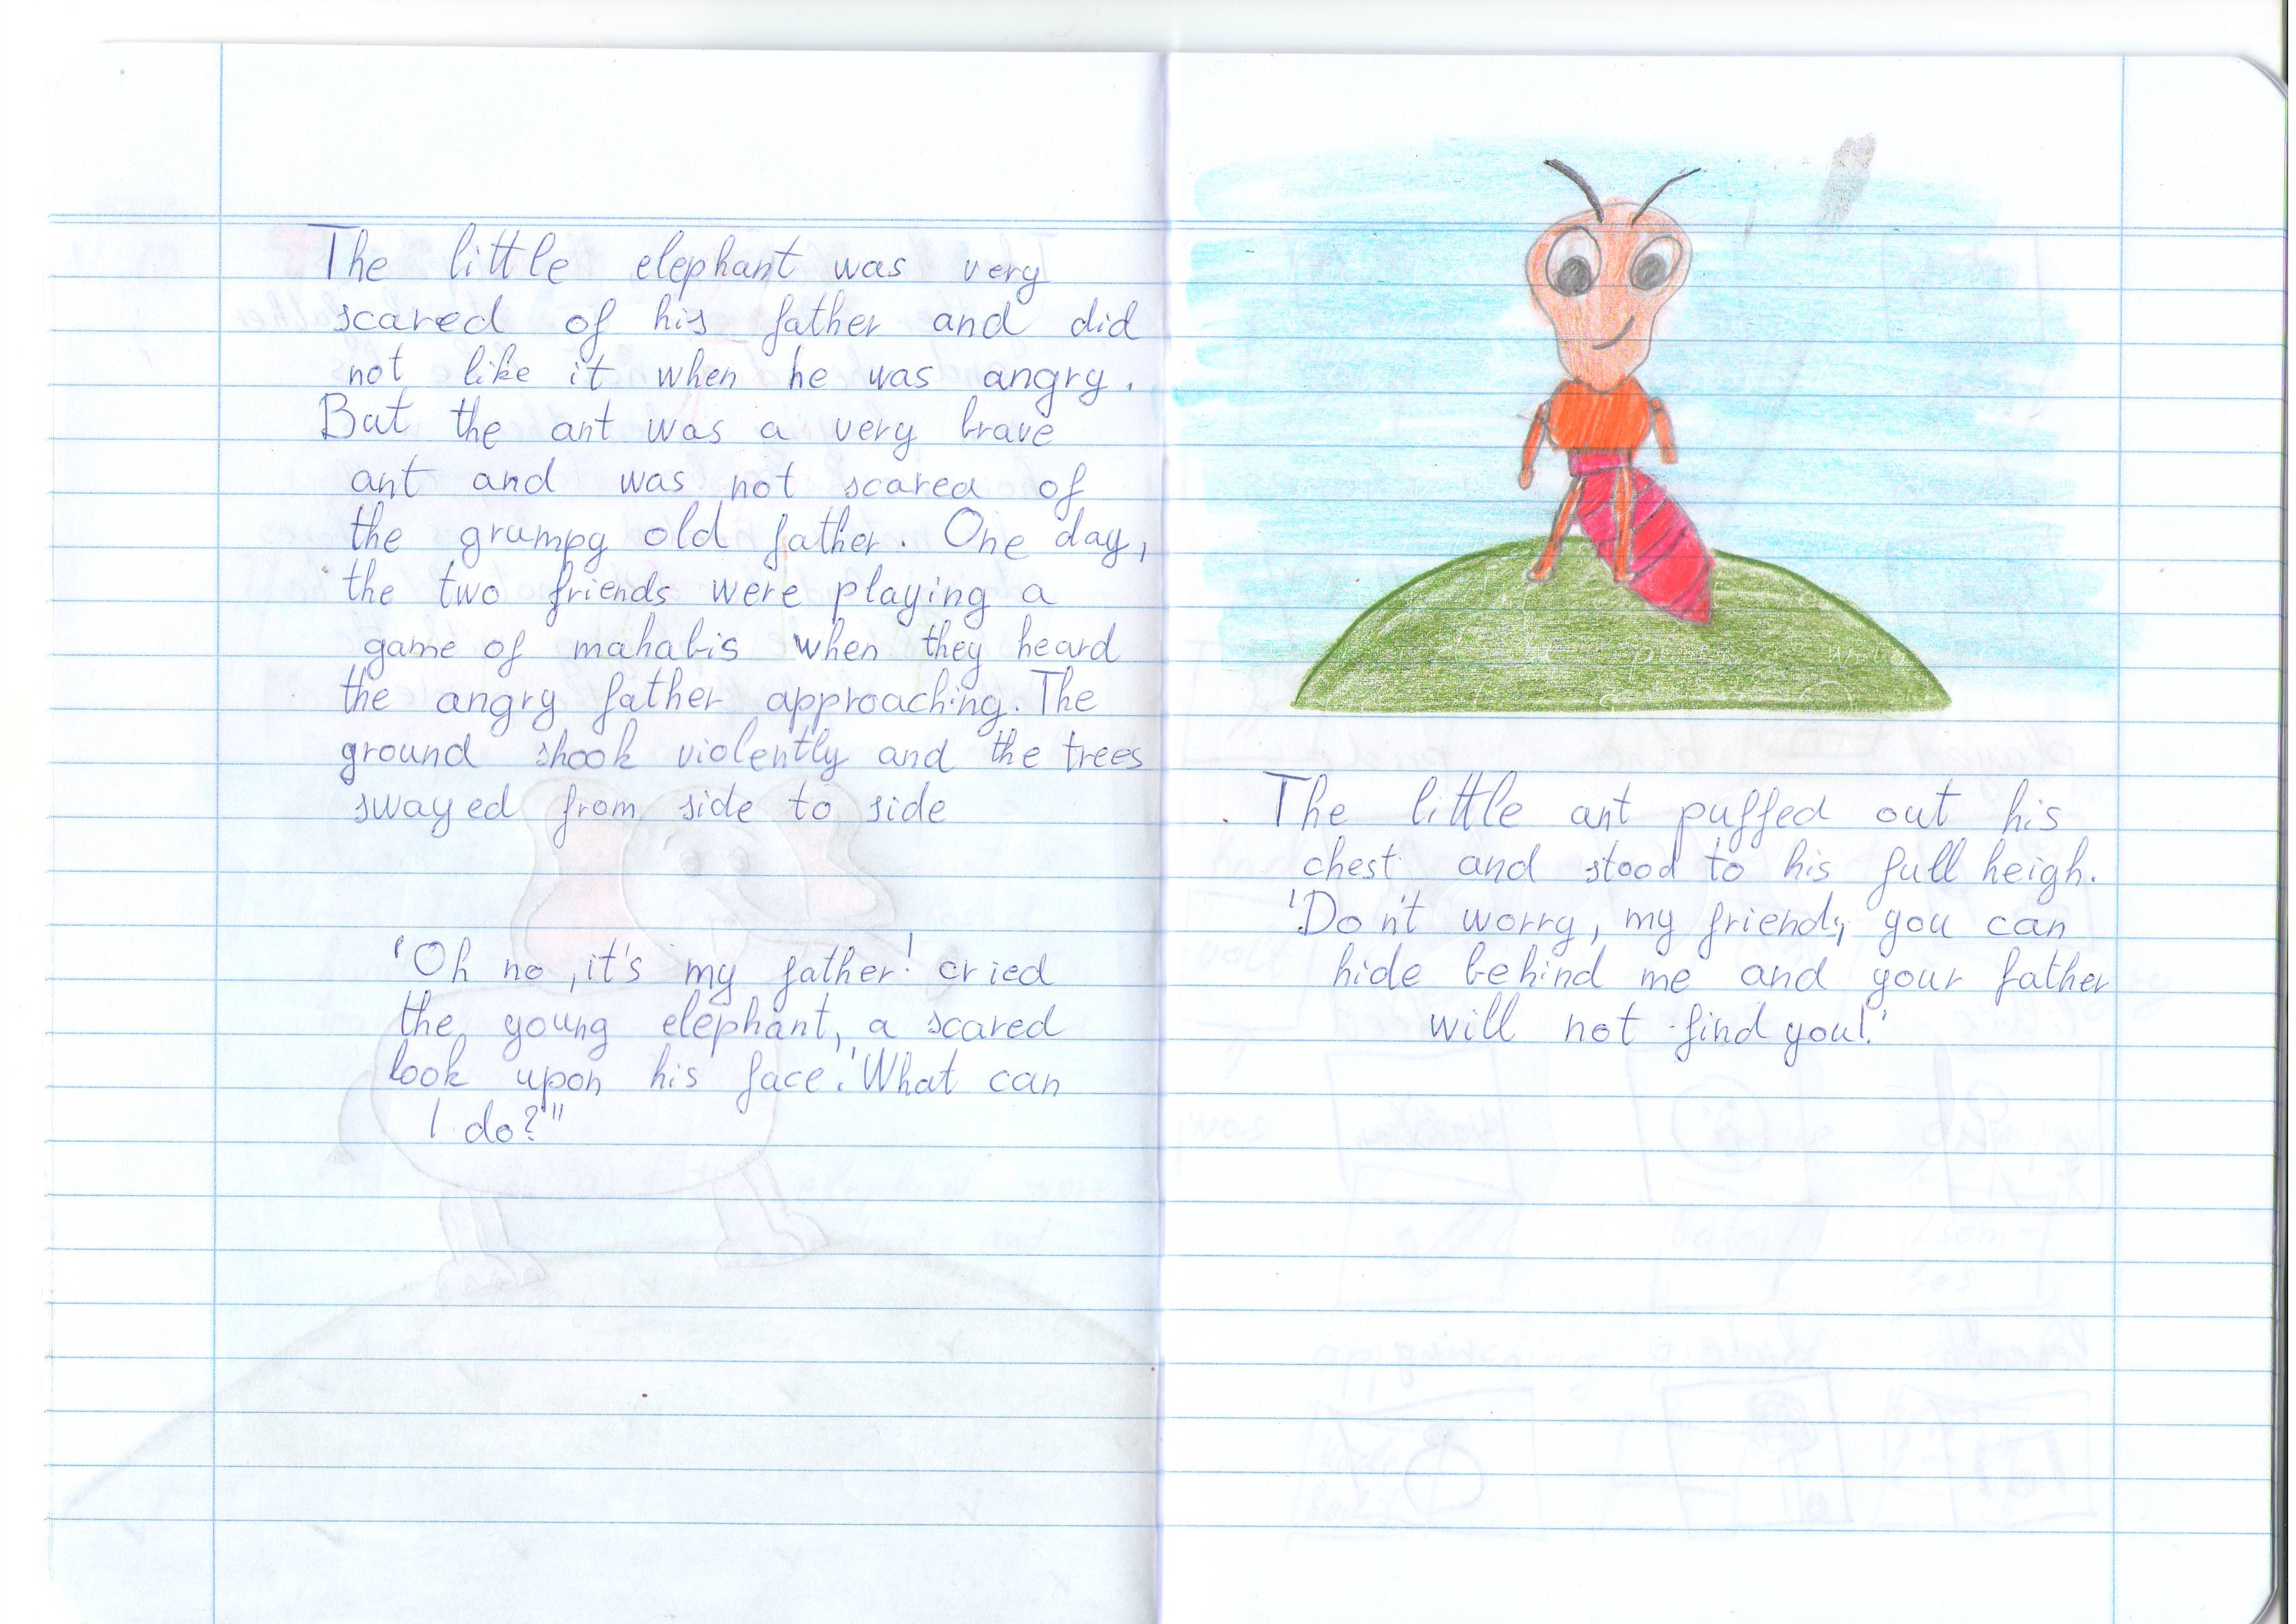 The little elephant was very
scared of his father and did
not like it when he was angry.
But the ant was a very brave
ant and was not scared of
the grumpy old father. One day,
the two friends were playing a
game of mahabis when they heard
the angry father approaching. The
ground shook violently and the trees
swayed from side to side
'Oh no, it's my father! cried
the young elephant, a scared
look upon his face. 'What can
I do?'"
The little ant puffed out his
chest and stood to his full heigh.
'Don't worry, my friend, you can
hide behind me and your father
will not find you!'